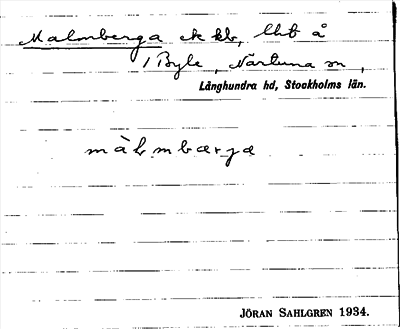 Malmberga ek kb, lht å
1 Byle, Närtuna sn,
Långhundra hd, Stockholms län.
màlmbærja
JÖRAN SAHLGREN 1934.